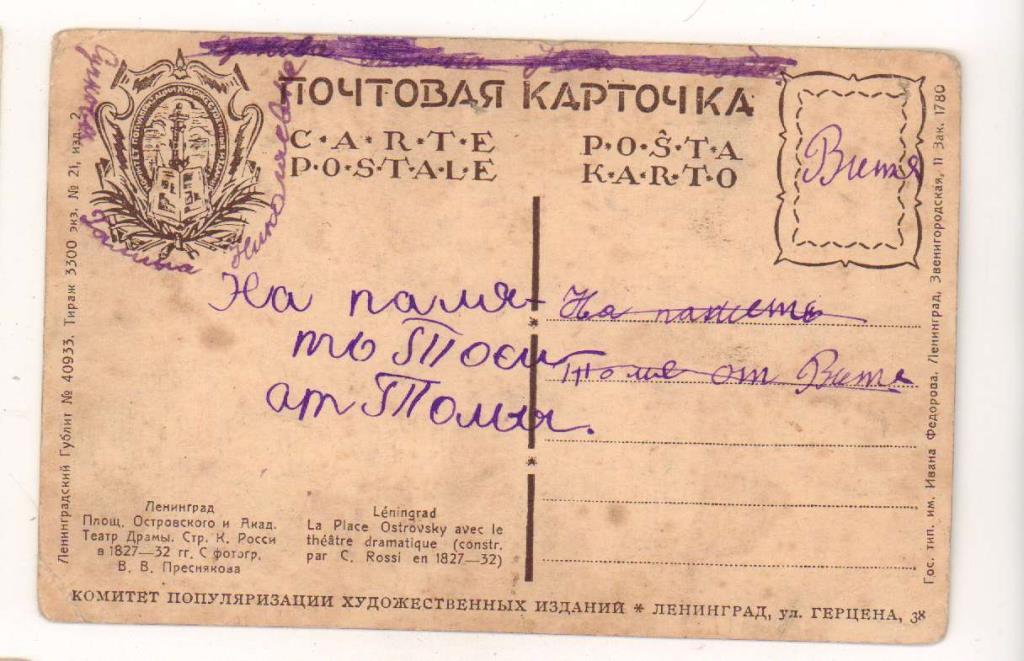 ПОЧТОВАЯ КАРТОЧКА
C·A·R·T·E
P·O·S·T·A·L·E
P·O·Ŝ·T·A
K·A·R·T·O
Николаевне
Витя
На памя-
ть Тосеи
ат Томы.
На память
Томе от Витя
Ленинград
Площ. Островского и Акад.
Театр Драмы. Стр. К. Росси
в 1827—32 гг. С фотогр.
В. В. Преснякова
Léningrad
La Place Ostrovsky avec le
théâtre dramatique (constr.
par C. Rossi en 1827—32)
КОМИТЕТ ПОПУЛЯРИЗАЦИИ ХУДОЖЕСТВЕННЫХ ИЗДАНИЙ * ЛЕНИНГРАД, ул. ГЕРЦЕНА, 38
Ленинградский Гублит № 40933. Тираж 3300 экз. № 21, изд. 2
Гос. тип. им. Ивана Федорова. Ленинград, Звенигородская, 11 Зак. 1780